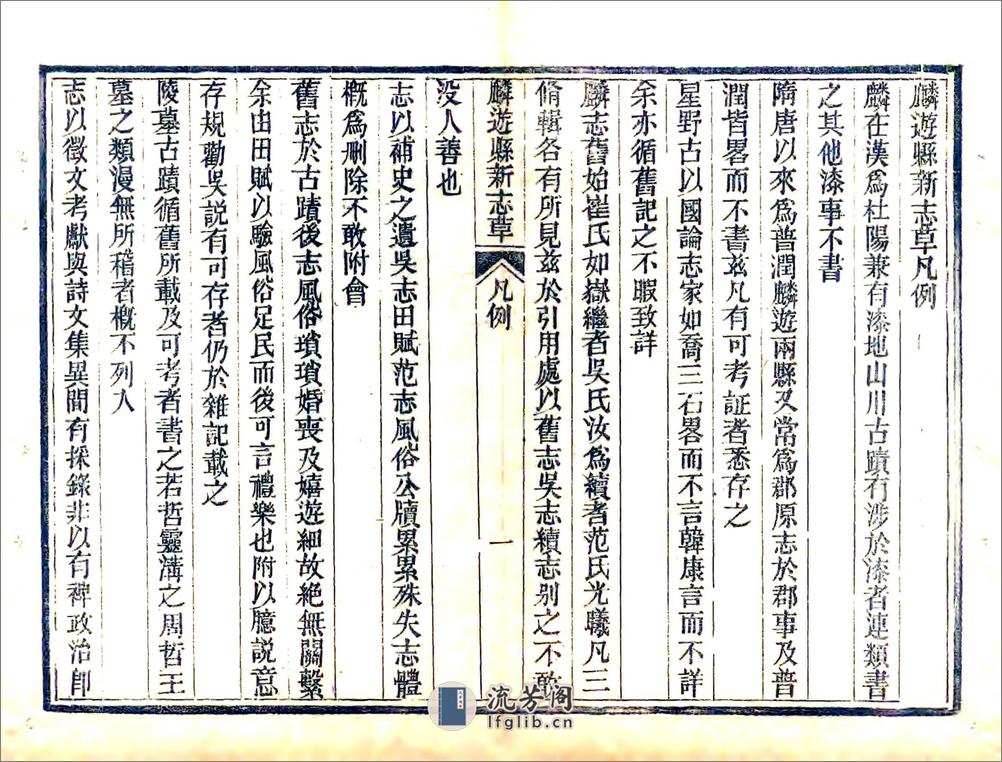 麟遊縣新志草凡例
麟在漢爲杜陽兼有漆地山川古蹟有涉於漆者連類書
之其他漆事不書
隋唐以來爲普潤麟遊兩縣又常爲郡原志於郡事及普
潤皆畧而不書兹凡有可考証者悉存之
星野古以國論志家如喬三石畧而不言韓康言而不詳
余亦循舊記之不暇致詳
麟志舊始崔氏如嶽繼者吳氏汝爲續者范氏光曦凡三
脩輯各有所見兹於引用處以舊志吳志續志别之不敢
麟遊縣新志草 凡例 一
没人善也
志以補史之遺吳志田賦范志風俗公牘累累殊失志體
概爲删除不敢附會
舊志於古蹟後志風俗瑣瑣婚喪及嬉遊細故絶無關繫
余由田賦以驗風俗足民而後可言禮樂也附以臆説意
存規勸吳説有可存者仍於雜記載之
陵墓古蹟循舊所載及可考者書之若哲靈溝之周哲王
墓之類漫無所稽者概不列入
志以徵文考獻與詩文集異間有採錄非以有裨政治即
流芳阁
lfglib.cn